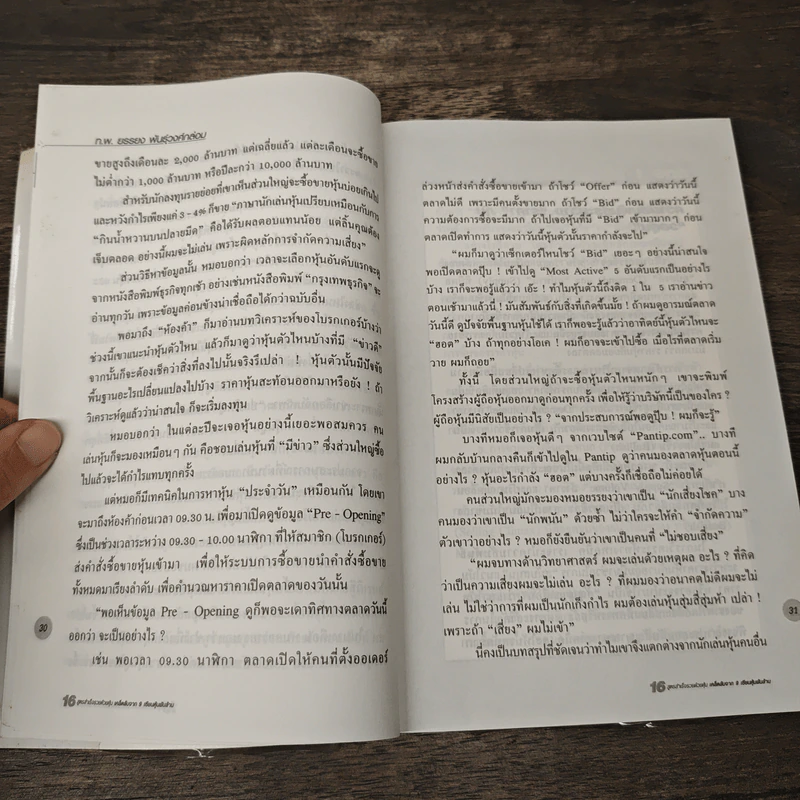 ท.พ. ยรรยง พันธุ์วงศ์กล่อม
ขายสูงถึงเดือนละ 2,000 ล้านบาท แต่เฉลี่ยแล้ว แต่ละเดือนจะซื้อขาย
ไม่ต่ำกว่า 1,000 ล้านบาท หรือปีละกว่า 10,000 ล้านบาท
สำหรับนักลงทุนรายย่อยที่เขาเห็นส่วนใหญ่จะซื้อขายหุ้นบ่อยเกินไป
และหวังกำไรเพียงแค่ 3 - 4% ก็ขาย "ภาษานักเล่นหุ้นเปรียบเหมือนกับการ
"กินน้ำหวานบนปลายมีด" คือได้รับผลตอบแทนน้อย แต่ลิ้นคุณต้อง
เจ็บตลอด อย่างนี้ผมจะไม่เล่น เพราะผิดหลักการจำกัดความเสี่ยง"
ส่วนวิธีหาข้อมูลนั้น หมอบอกว่า เวลาจะเลือกหุ้นอันดับแรกจะดู
จากหนังสือพิมพ์ธุรกิจทุกเช้า อย่างเช่นหนังสือพิมพ์ "กรุงเทพธุรกิจ" จะ
อ่านทุกวัน เพราะข้อมูลค่อนข้างน่าเชื่อถือได้กว่าฉบับอื่น
พอมาถึง "ห้องค้า" ก็มาอ่านบทวิเคราะห์ของโบรกเกอร์บ้างว่า
ช่วงนี้เขาแนะนำหุ้นตัวไหน แล้วก็มาดูว่าหุ้นตัวไหนบ้างที่มี "ข่าวดี"
จากนั้นก็จะต้องเช็คว่าสิ่งที่ลงไปนั้นจริงรึเปล่า ! หุ้นตัวนั้นมีปัจจัย
พื้นฐานอะไรเปลี่ยนแปลงไปบ้าง ราคาหุ้นสะท้อนออกมาหรือยัง ! ถ้า
วิเคราะห์ดูแล้วว่าน่าสนใจ ก็จะเริ่มลงทุน
หมอบอกว่า ในแต่ละปีจะเจอหุ้นอย่างนี้เยอะพอสมควร คน
เล่นหุ้นก็จะมองเหมือนๆ กัน คือชอบเล่นหุ้นที่ "มีข่าว" ซึ่งส่วนใหญ่ซื้อ
ไปแล้วจะได้กำไรแทบทุกครั้ง
แต่หมอก็มีเทคนิคในการหาหุ้น "ประจำวัน" เหมือนกัน โดยเขา
จะมาถึงห้องค้าก่อนเวลา 09.30 น. เพื่อมาเปิดดูข้อมูล "Pre - Opening"
ซึ่งเป็นช่วงเวลาระหว่าง 09.30 - 10.00 นาฬิกา ที่ให้สมาชิก (โบรกเกอร์)
ส่งคำสั่งซื้อขายหุ้นเข้ามา เพื่อให้ระบบการซื้อขายนำคำสั่งซื้อขาย
ทั้งหมดมาเรียงลำดับ เพื่อคำนวณหาราคาเปิดตลาดของวันนั้น
"พอเห็นข้อมูล Pre - Opening ดูก็พอจะเดาทิศทางตลาดวันนี้
ออกว่า จะเป็นอย่างไร ?
เช่น พอเวลา 09.30 นาฬิกา ตลาดเปิดให้คนที่ตั้งออเดอร์
30
16 สูตรสำเร็จรวยด้วยหุ้น เคล็ดลับจาก 8 เซียนหุ้นพันล้าน
ล่วงหน้าส่งคำสั่งซื้อขายเข้ามา ถ้าโชว์ "Offer" ก่อน แสดงว่าวันนี้
ตลาดไม่ดี เพราะมีคนตั้งขายมาก ถ้าโชว์ "Bid" ก่อน แสดงว่าวันนี้
ความต้องการซื้อจะมีมาก ถ้าไปเจอหุ้นที่มี "Bid" เข้ามามากๆ ก่อน
ตลาดเปิดทำการ แสดงว่าวันนี้หุ้นตัวนั้นราคากำลังจะไป"
"ผมก็มาดูว่าเซ็กเตอร์ไหนโชว์ "Bid" เยอะๆ อย่างนี้น่าสนใจ
พอเปิดตลาดปุ๊บ ! เข้าไปดู "Most Active" 5 อันดับแรกเป็นอย่างไร
บ้าง เราก็จะพอรู้แล้วว่า เอ๊ะ ! ทำไมหุ้นตัวนี้ถึงติด 1 ใน 5 เราอ่านข่าว
ตอนเช้ามาแล้วนี่ ! มันสัมพันธ์กับสิ่งที่เกิดขึ้นมั้ย ! ถ้าผมดูอารมณ์ตลาด
วันนี้ดี ดูปัจจัยพื้นฐานหุ้นใช้ได้ เราก็พอจะรู้แล้วว่าอาทิตย์นี้หุ้นตัวไหนจะ
"ฮอต" บ้าง ถ้าทุกอย่างโอเค ! ผมก็อาจจะเข้าไปซื้อ เมื่อไรที่ตลาดเริ่ม
วาย ผมก็ถอย"
ทั้งนี้ โดยส่วนใหญ่ถ้าจะซื้อหุ้นตัวไหนหนักๆ เขาจะพิมพ์
โครงสร้างผู้ถือหุ้นออกมาดูก่อนทุกครั้ง เพื่อให้รู้ว่าบริษัทนี้เป็นของใคร ?
ผู้ถือหุ้นมีนิสัยเป็นอย่างไร ? "จากประสบการณ์พอดูปุ๊บ ! ผมก็จะรู้"
บางทีหมอก็เจอหุ้นดีๆ จากเวบไซต์ "Pantip.com".. บางที
ผมกลับบ้านกลางคืนก็เข้าไปดูใน Pantip ดูว่าคนมองตลาดหุ้นตอนนี้
อย่างไร ? หุ้นอะไรกำลัง "ฮอต" แต่บางครั้งก็เชื่อถือไม่ค่อยได้
คนส่วนใหญ่มักจะมองหมอยรรยงว่าเขาเป็น "นักเสี่ยงโชค" บาง
คนมองว่าเขาเป็น "นักพนัน" ด้วยซ้ำ ไม่ว่าใครจะให้คำ "จำกัดความ"
ตัวเขาว่าอย่างไร ? หมอก็ยังยืนยันว่าเขาเป็นคนที่ "ไม่ชอบเสี่ยง"
"ผมจบทางด้านวิทยาศาสตร์ ผมจะเล่นด้วยเหตุผล อะไร ? ที่คิด
ว่าเป็นความเสี่ยงผมจะไม่เล่น อะไร ? ที่ผมมองว่าอนาคตไม่ดีผมจะไม่
เล่น ไม่ใช่ว่าการที่ผมเป็นนักเก็งกำไร ผมต้องเล่นหุ้นสุ่มสี่สุ่มห้า เปล่า !
เพราะถ้า "เสี่ยง" ผมไม่เข้า"
นี่คงเป็นบทสรุปที่ชัดเจนว่าทำไมเขาจึงแตกต่างจากนักเล่นหุ้นคนอื่น
31
16 สูตรสำเร็จรวยด้วยหุ้น เคล็ดลับจาก 8 เซียนหุ้นพันล้าน